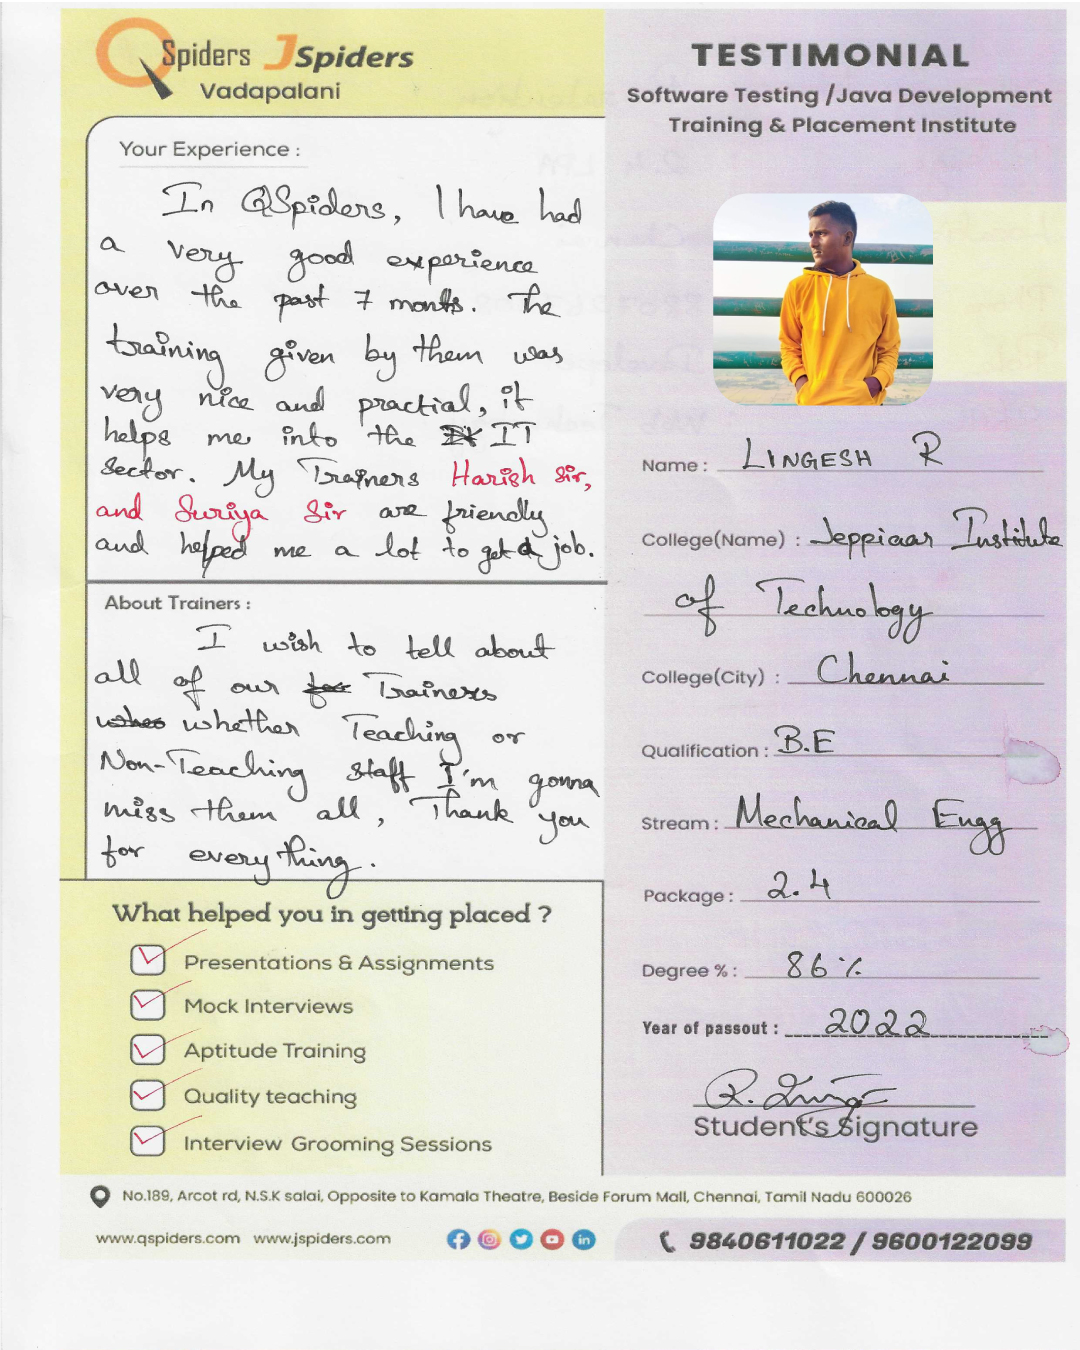 QSpiders JSpiders
Vadapalani
TESTIMONIAL
Software Testing /Java Development
Training & Placement Institute
Your Experience :
In QSpiders, I have had
a very good experience
over the past 7 months. The
training given by them was
very nice and practial, it
helps me into the IT
Sector. My Trainers Harish Sir,
and Suriya Sir are friendly
and helped me a lot to get a job.
About Trainers :
I wish to tell about
all of our for Trainers
whether Teaching or
Non-Teaching staff I'm gonna
miss them all, Thank you
for everything.
What helped you in getting placed ?
Presentations & Assignments
Mock Interviews
Aptitude Training
Quality teaching
Interview Grooming Sessions
Name : LINGESH R
College(Name) : Jeppiaar Institute
of Technology
College(City) : Chennai
Qualification : B.E
Stream : Mechanical Engg
Package : 2.4
Degree % : 86 %
Year of passout : 2022
Student's Signature
No.189, Arcot rd, N.S.K salai, Opposite to Kamala Theatre, Beside Forum Mall, Chennai, Tamil Nadu 600026
www.qspiders.com www.jspiders.com
9840611022 / 9600122099